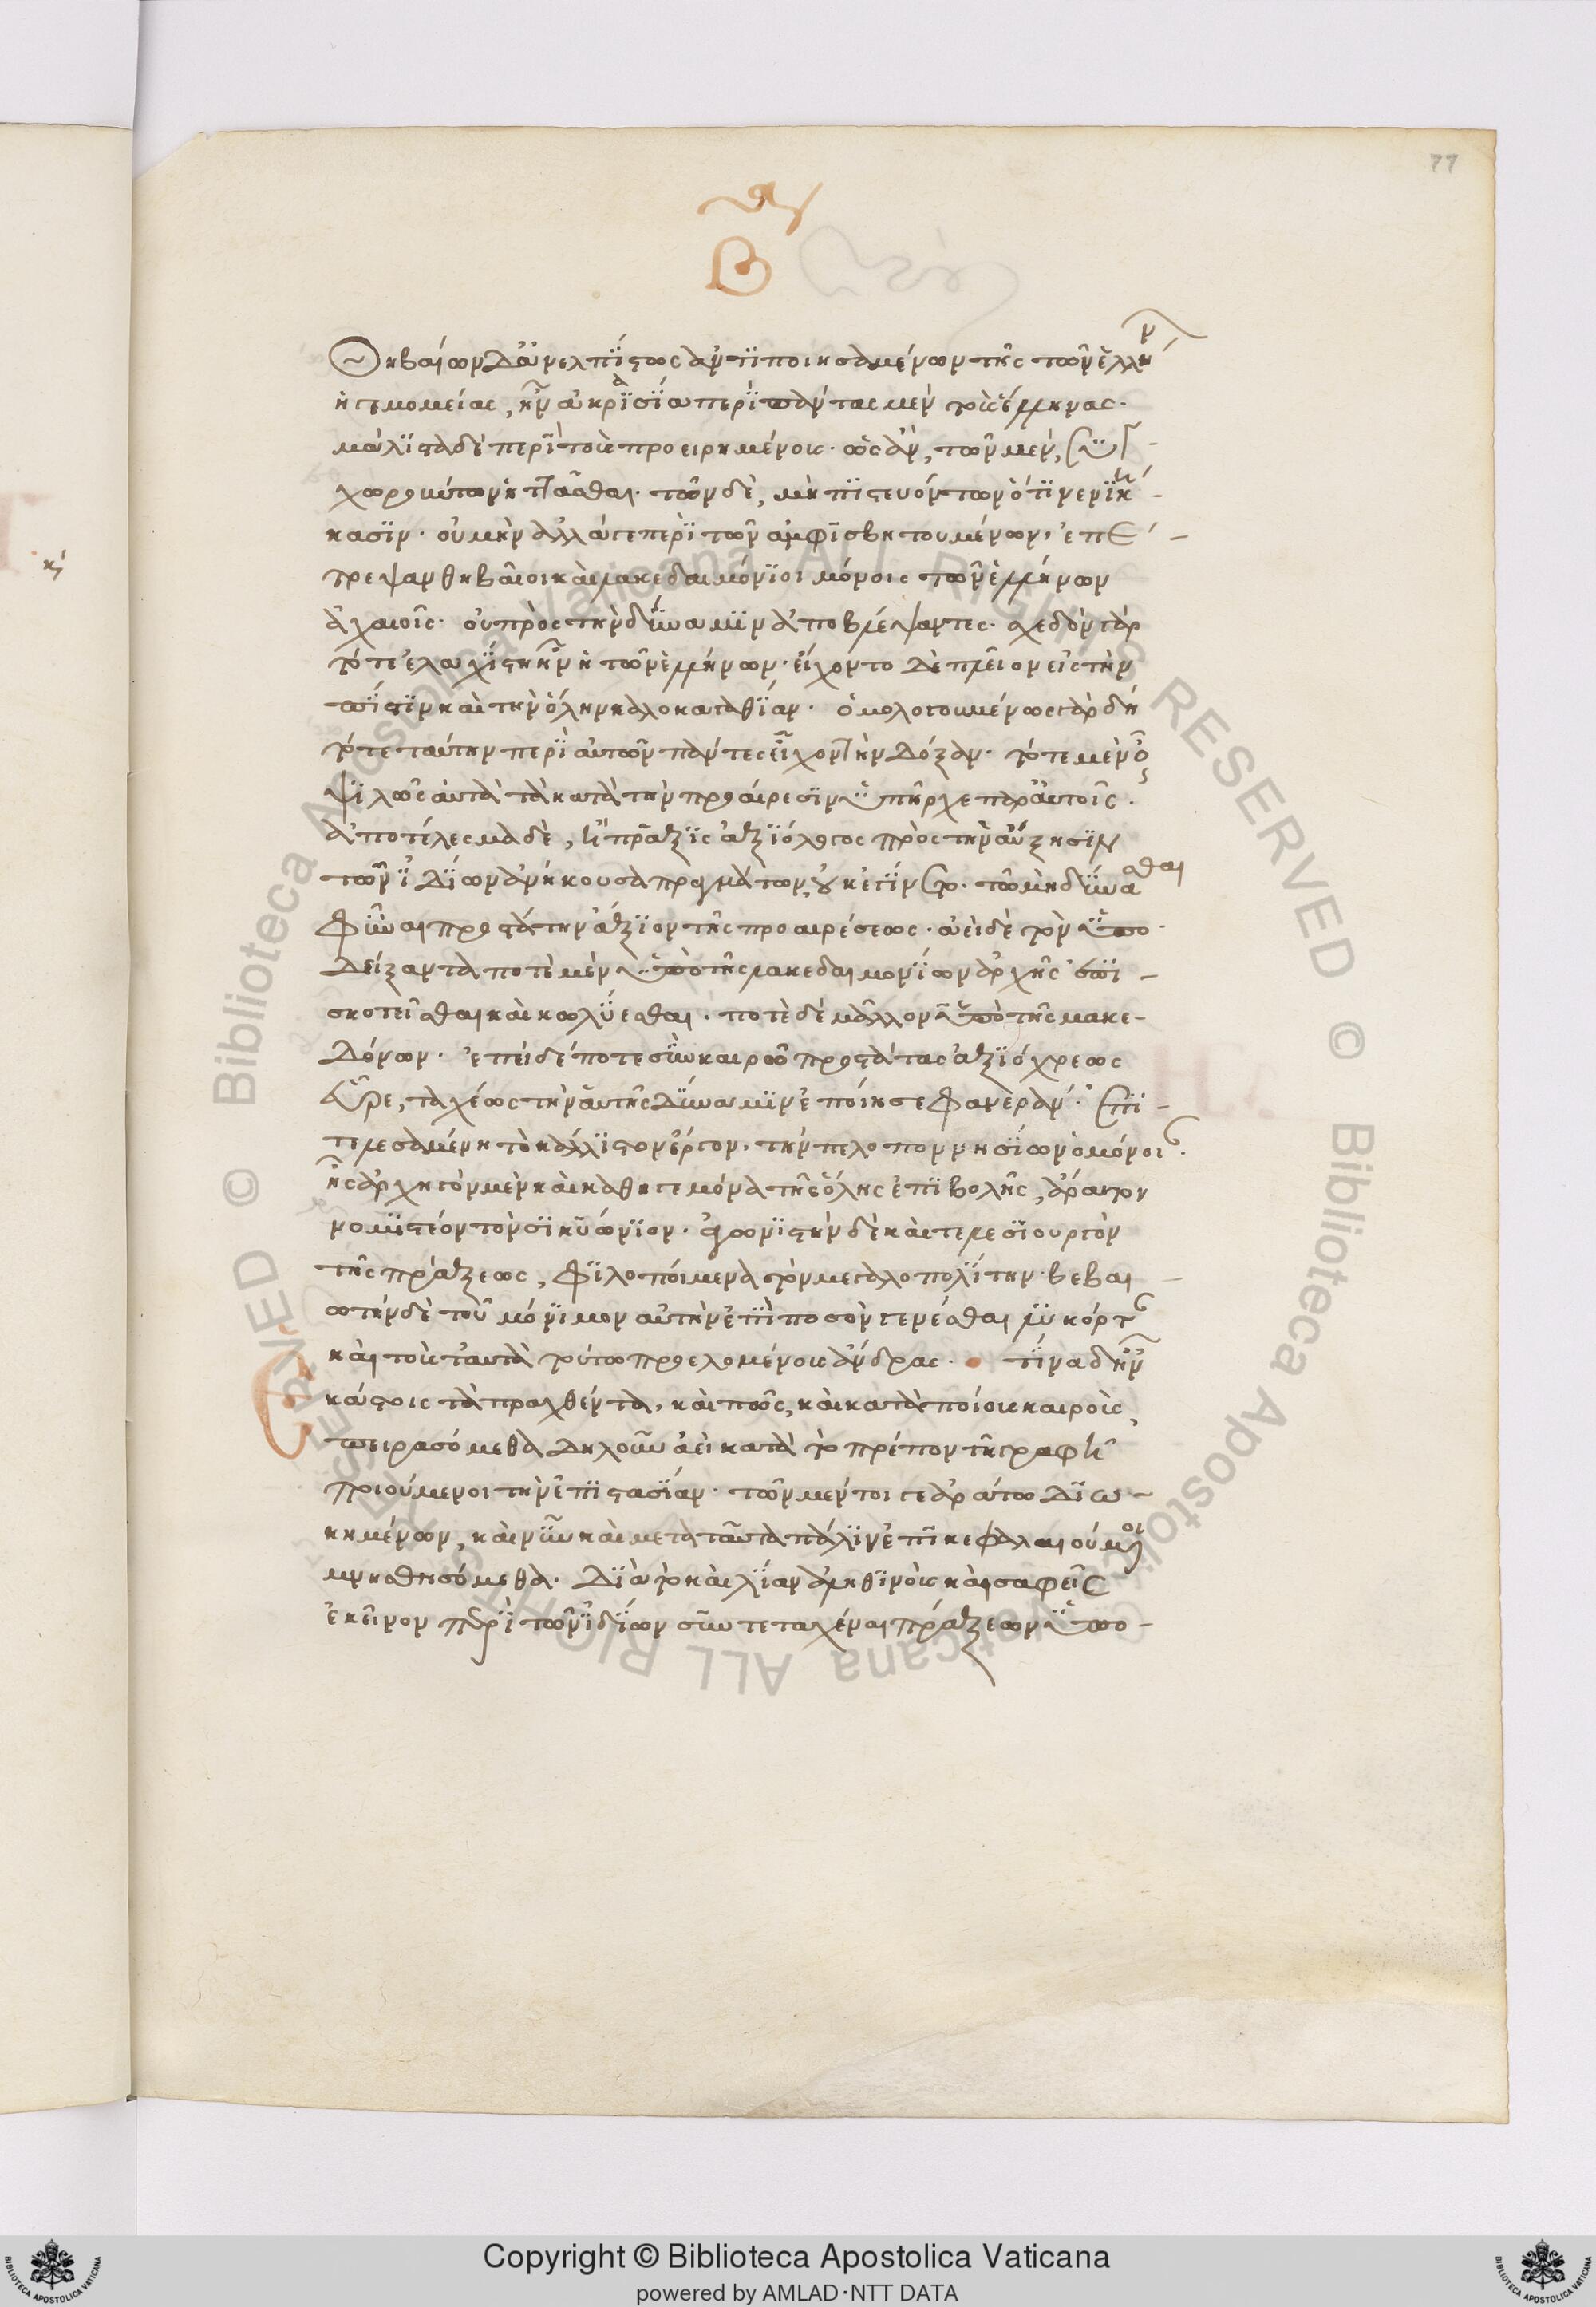 77
β
Θηβαίων δ' ἀνελπίστως ἀντιποιησαμένων τῆς τῶν ἑλλήν
ἡγεμονείας, ἦν ἀκρισία περὶ πάντας μὲν τοὺς ἕλληνας·
μάλιστα δὲ περὶ τοὺς προειρημένους· ὡς ἂν, τῶν μὲν,
χωρούντων ἡττᾶσθαι· τῶν δὲ, μὴ πιστευόντων ὅτι νενική-
κασιν· οὐ μὴν ἀλλά γε περὶ τῶν ἀμφισβητουμένων, ἐπέ-
τρεψαν θηβαῖοι καὶ λακεδαιμόνιοι μόνοις τῶν ἑλλήνων
ἀχαιοῖς· οὐ πρὸς τὴν δύναμιν ἀποβλέψαντες· σχεδὸν γὰρ
τότε ἐλαχίστη ἦν ἡ τῶν ἑλλήνων· εἴχοντο δὲ πλεῖον εἰς τὴν
πίστιν καὶ τὴν ὅλην καλοκαγαθίαν· ὁμολογουμένως γὰρ δὴ
τότε ταύτην περὶ αὐτῶν πάντες εἶχον τὴν δόξαν· τότε μὲν οὖν
ψιλῶς αὐτὰ τὰ κατὰ τὴν προαίρεσιν ὑπῆρχε παρ' αὐτοῖς·
ἀποτέλεσμα δὲ, ἢ πρᾶξις ἀξιόλογος πρὸς τὴν αὔξησιν
τῶν ἰδίων ἀνήκουσα πραγμάτων, οὐκ ἐγίνετο· τῶ μὴ δύνασθαι
φῦναι προστάτην ἄξιον τῆς προαιρέσεως· ἀεὶ δὲ τὸν ὑπο-
δείξαντα ποτὲ μὲν ὑπὸ τῆς λακεδαιμονίων ἀρχῆς ἐπι-
σκοτεῖσθαι καὶ κωλύεσθαι· ποτὲ δὲ μᾶλλον ὑπὸ τῆς μακε-
δόνων· ἐπεὶ δέ ποτε σὺν καιρῶ προστάτας ἀξιόχρεως
εὗρε, ταχέως τὴν αὑτῆς δύναμιν ἐποίησε φανεράν· ἐπι-
τελεσαμένη τὸ κάλλιστον ἔργον, τὴν πελοποννησίων ὁμόνοιαν·
ἧς ἀρχηγὸν μὲν καὶ καθηγεμόνα τῆς ὅλης ἐπιβολῆς, ἄρατον
νομιστέον τὸν σικυώνιον· ἀγωνιστὴν δὲ καὶ τελεσιουργὸν
τῆς πράξεως, φιλοποίμενα τὸν μεγαλοπολίτην· βεβαι-
ωτὴν δὲ τοῦ μόνιμον αὐτὴν ἐπὶ ποσὸν γενέσθαι λυκόρταν
καὶ τοὺς ταὐτὰ τούτω προελομένους ἄνδρας· τίνα δ' ἦν
ἑκάστοις τὰ πραχθέντα, καὶ πῶς, καὶ κατὰ ποίους καιροὺς,
πειρασόμεθα δηλοῦν ἀεὶ κατὰ τὸ πρέπον τῆ γραφῆ
ποιούμενοι τὴν ἐπίστασιν· τῶν μέντοι γε ἀράτω διω-
κημένων, καὶ νῦν καὶ μετὰ ταῦτα πάλιν ἐπικεφαλαιούμενοι
μνησθησόμεθα· διὰ τὸ καὶ λίαν ἀληθινοὺς καὶ σαφεῖς
ἐκεῖνον περὶ τῶν ἰδίων συντεταχέναι πράξεων ὑπο-